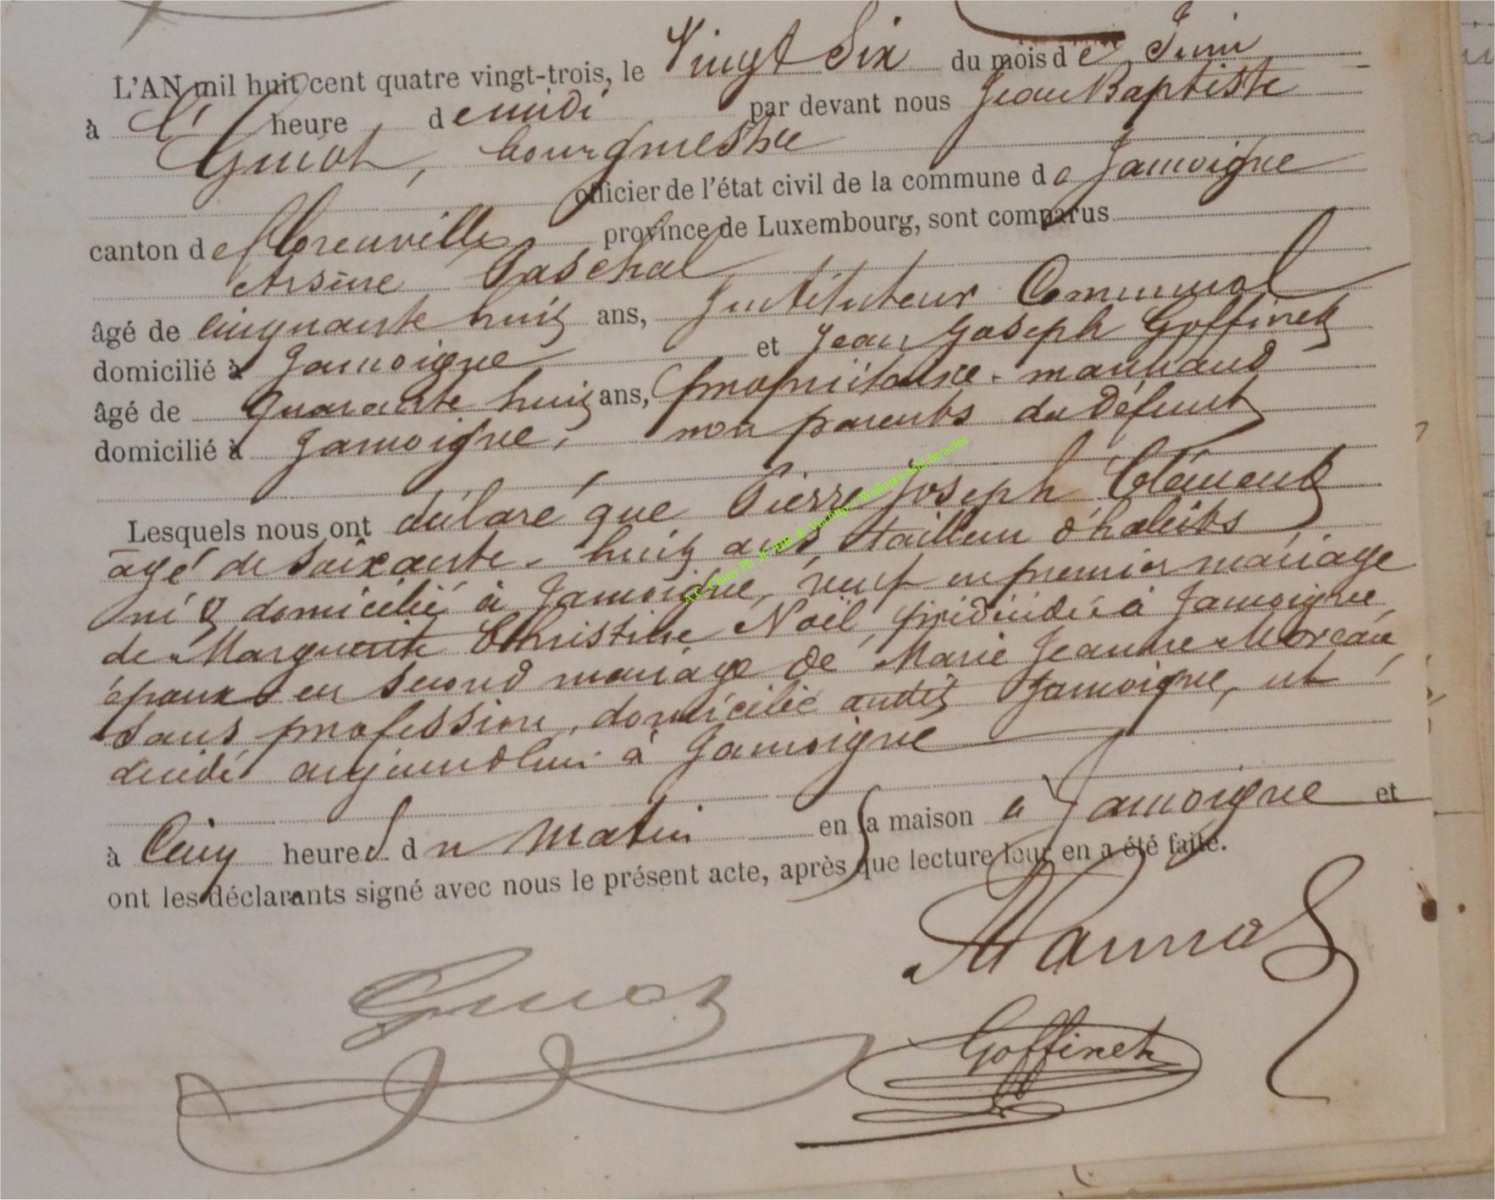 L'AN mil huit cent quatre vingt-trois, le Vingt Six du mois de Juin
à l' heure de midi par devant nous Jean Baptiste
Guiot, bourgmestre
officier de l'état civil de la commune de Jamoigne
canton de florenville province de Luxembourg, sont comparus
Arsène Paschal
âgé de cinquante huit ans, Instituteur Communal
domicilié à Jamoigne et Jean Joseph Goffinet
âgé de quarante huit ans, propriétaire - marchand
domicilié à Jamoigne, non parents du défunt
Lesquels nous ont déclaré que Pierre Joseph Clément
âgé de soixante-huit ans tailleur d'habits
né & domicilié à Jamoigne, veuf en premier mariage
de Marguerite Christine Noël, prédécédée à Jamoigne,
époux en second mariage de Marie Jeanne Moreau,
sans profession, domiciliée audit Jamoigne, est
décédé aujourd'hui à Jamoigne
à Cinq heures du matin en sa maison à Jamoigne et
ont les déclarants signé avec nous le présent acte, après que lecture leur en a été faite.
Guiot
Goffinet